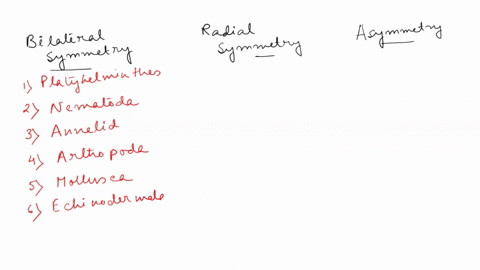 Bilateral
Symmetry
1) Platyhelminthes
2) Nematoda
3) Annelid
4) Arthropoda
5) Mollusca
6) Echinodermata
Radial
Symmetry
Asymmetry